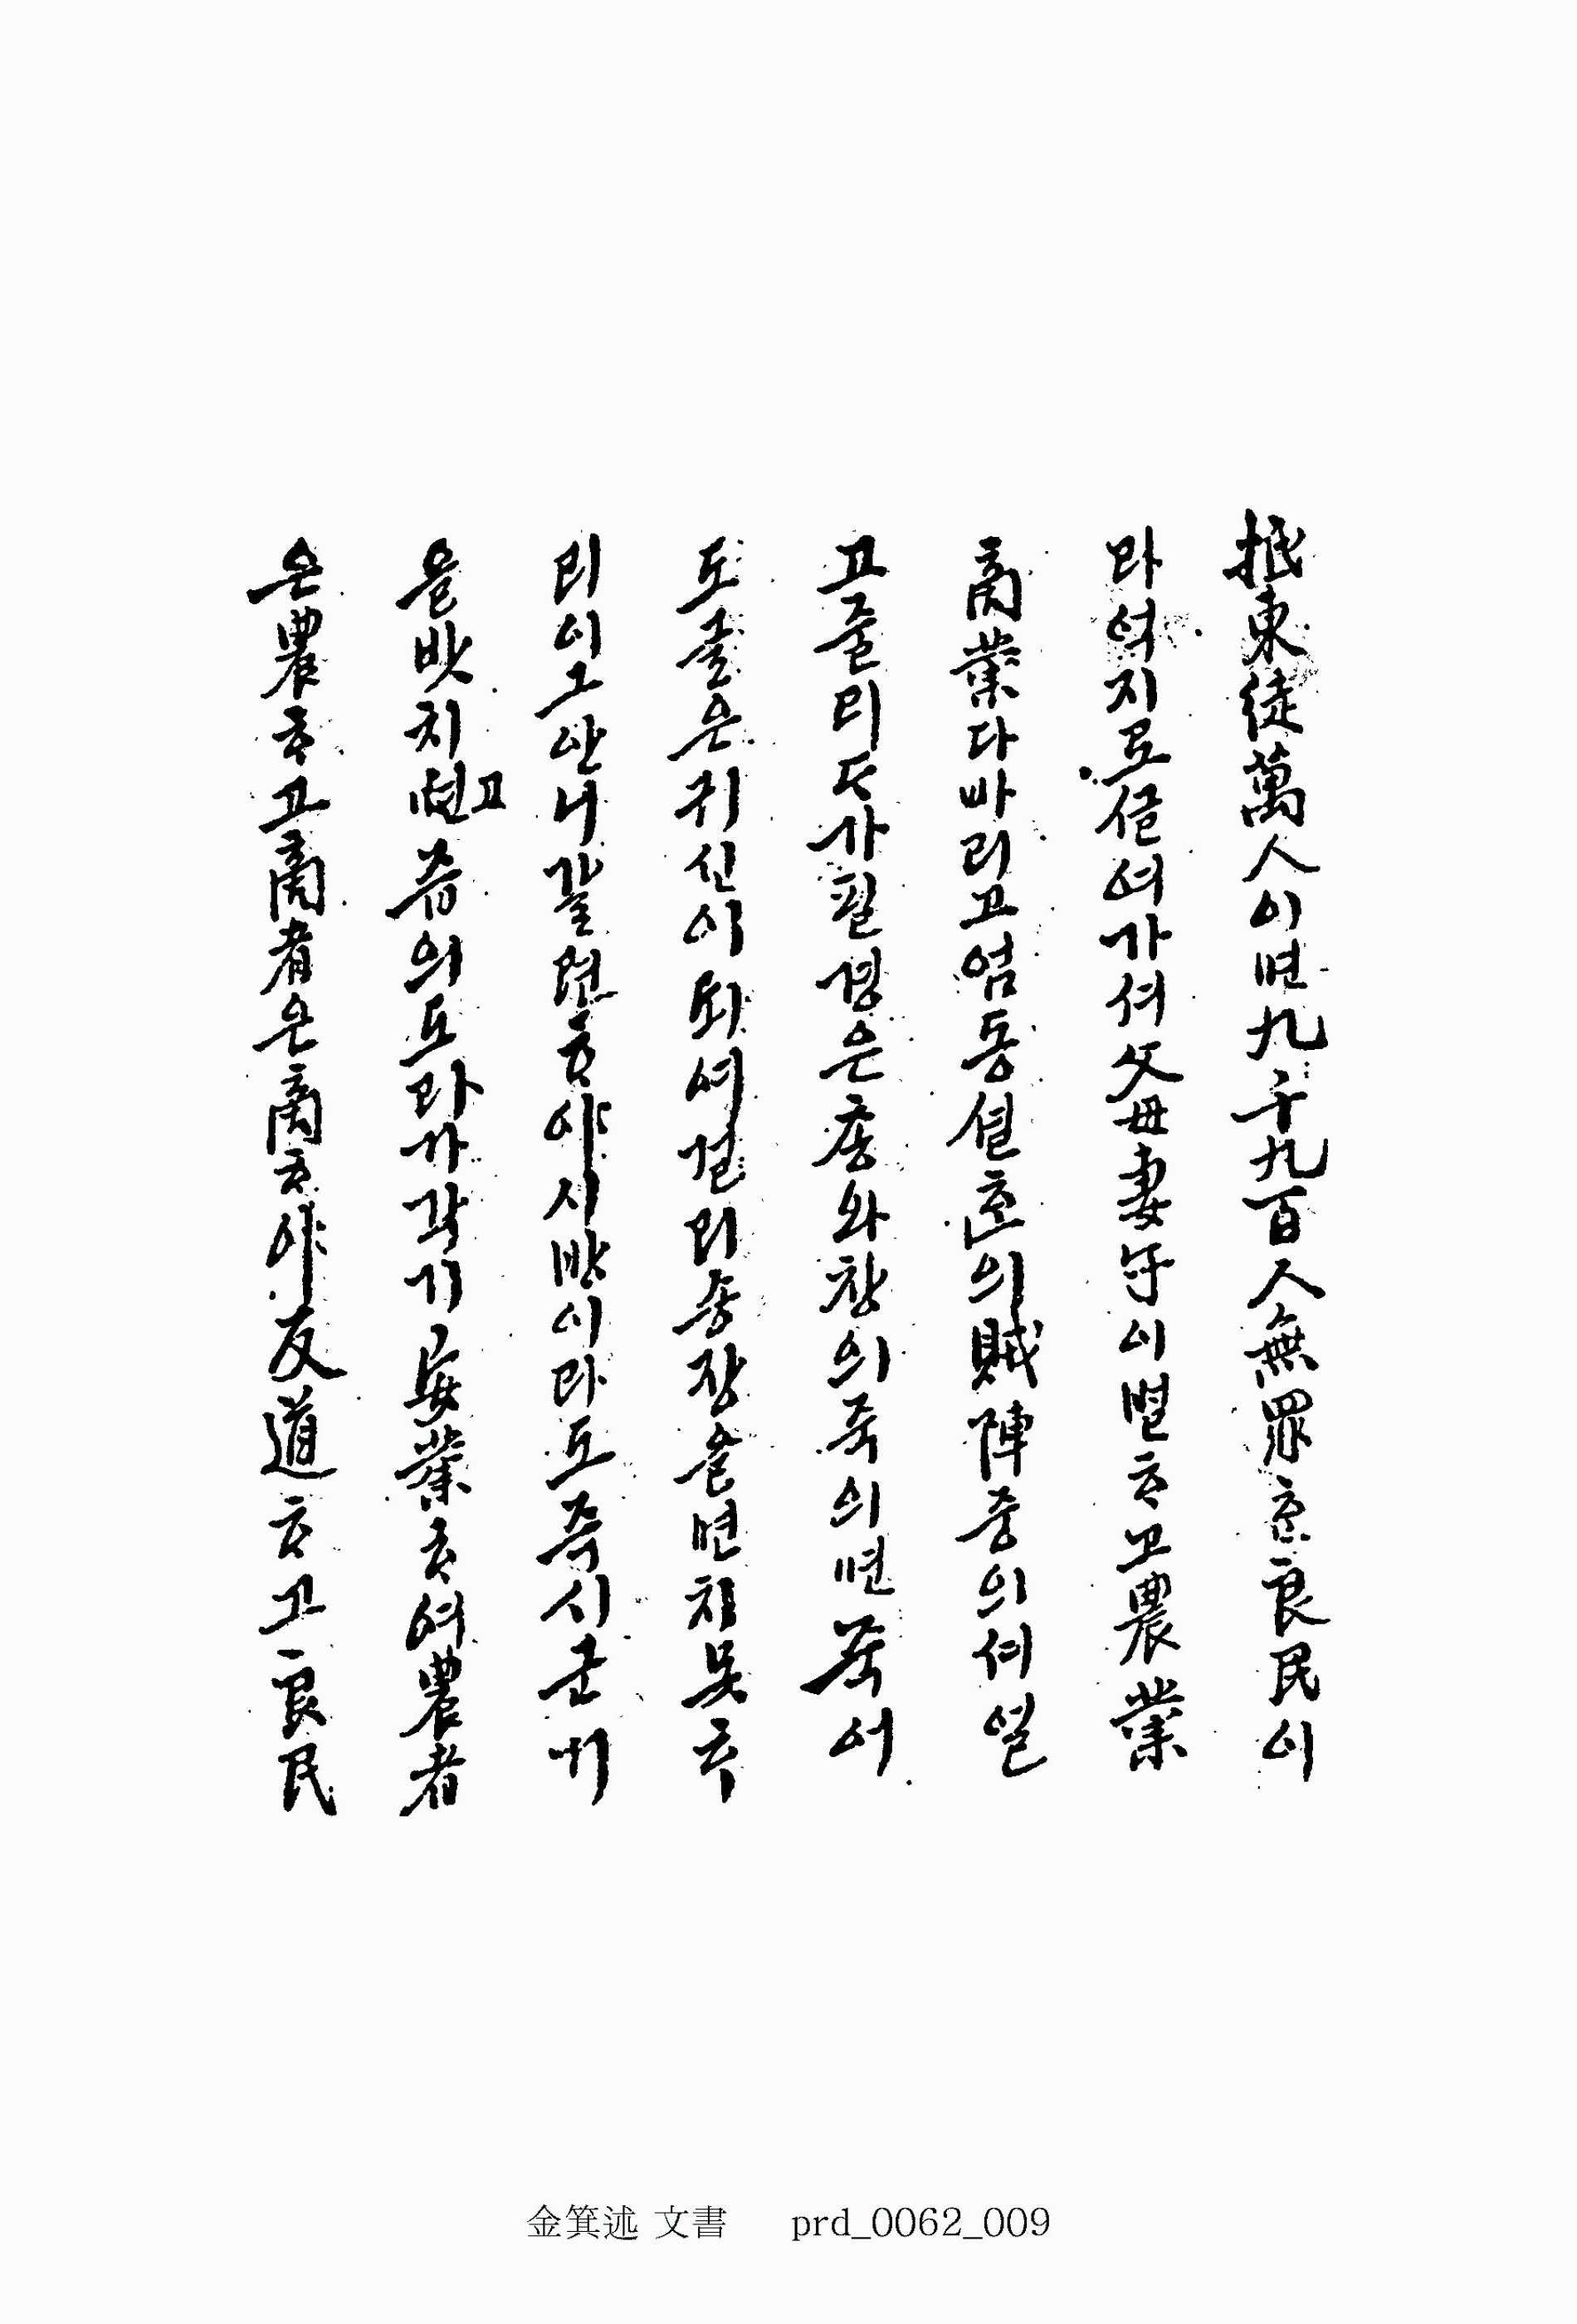 抵東徒萬人이면九千九百人無罪ᄒᆞᆫ良民이
라여지로잡여가셔父母妻子이별ᄒᆞ고農業
商業다바리고엄동셜寒의賊陣중의셔얼
고쥴리다가필경은춍와창의죽의면죽어
도혼은귀신이되여결리송장을면치못ᄒᆞ
리이그안니갈련ᄒᆞ야시방이라도즉시군긔
을밧치면고 즁의도라가각기安業ᄒᆞ여農者
은農ᄒᆞ고商者은商ᄒᆞ야反道ᄒᆞ고良民
金箕述 文書 prd_0062_009